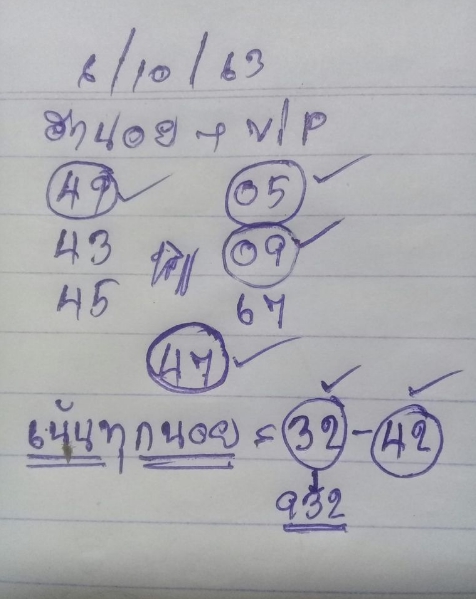 6/10/63
ฮานอย + V/P
49 05
43 09
45 67
47
เน้นทุกนอย = 32 - 42
932